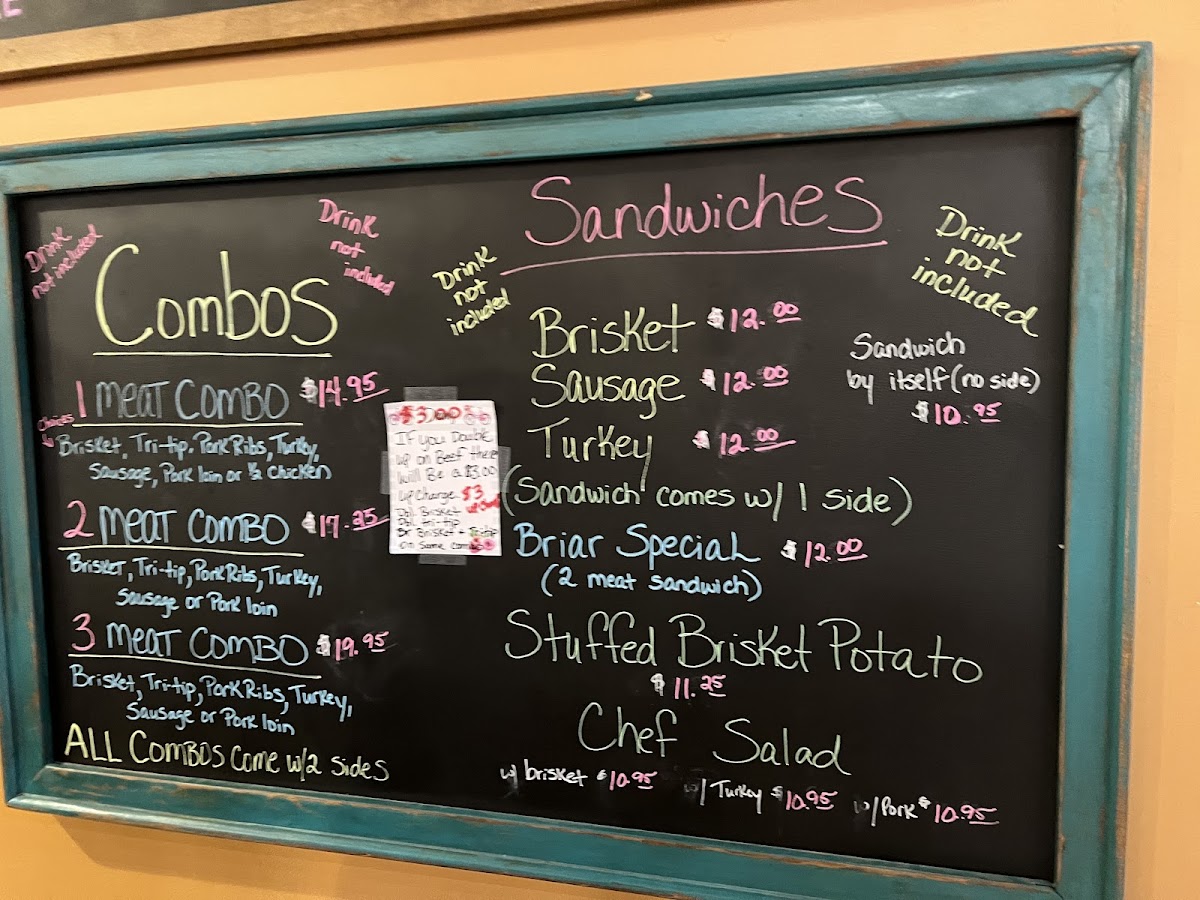 Drink
not included
Drink
not
included
Combos
1 Meat Combo $14.95
Choices
Brisket, Tri-tip, Pork Ribs, Turkey,
Sausage, Pork loin or ½ Chicken
2 Meat Combo $17.25
Brisket, Tri-tip, Pork Ribs, Turkey,
Sausage or Pork loin
3 Meat Combo $19.95
Brisket, Tri-tip, Pork Ribs, Turkey,
Sausage or Pork loin
ALL Combos Come w/2 sides
$3.00
If you Double
up on Beef there
will Be a $3.00
up Charge $3
Dbl. Brisket
Dbl. tri-tip
Or Brisket + Tri-tip
on same combo
Drink
not
included
Sandwiches
Drink
not
included
Brisket $12.00
Sausage $12.00
Turkey $12.00
Sandwich
by itself (no side)
$10.95
(Sandwich comes w/ 1 side)
Briar Special $12.00
(2 meat sandwich)
Stuffed Brisket Potato
$11.25
Chef Salad
w/ brisket $10.95 w/ Turkey $10.95 w/Pork $10.95